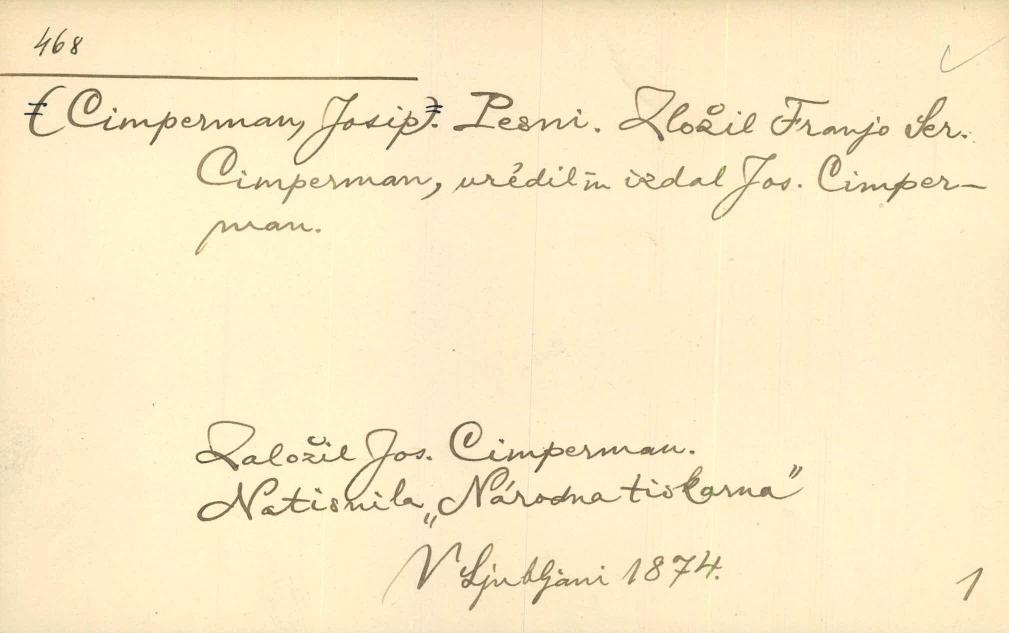 468
(Cimperman, Josip). Pesni. Zložil Franjo Ser.
Cimperman, uredil in izdal Jos. Cimper-
man.
Založil Jos. Cimperman.
Natisnila „Národna tiskarna"
V Ljubljani 1874.
1